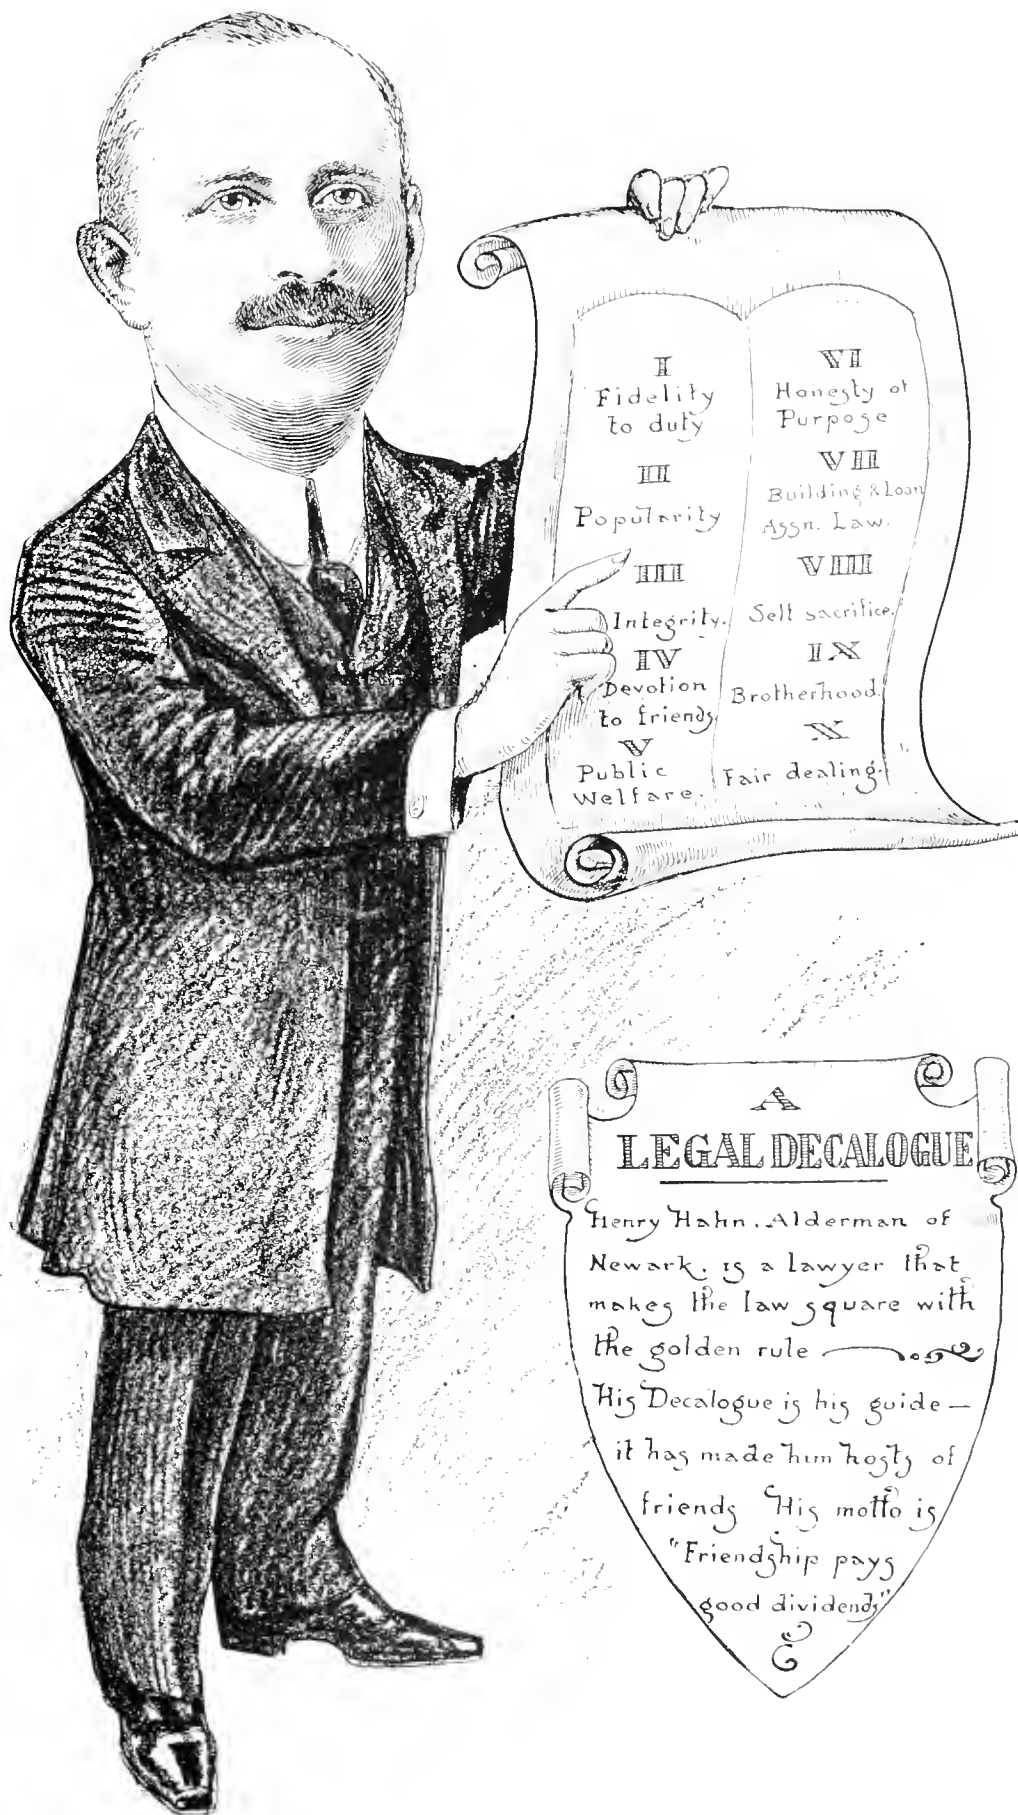 I
Fidelity
to duty
II
Popularity
III
Integrity.
IV
Devotion
to friends
V
Public
Welfare.
VI
Honesty of
Purpose
VII
Building & Loan
Assn. Law.
VIII
Self sacrifice.
IX
Brotherhood.
X
Fair dealing.
A
LEGAL DECALOGUE
Henry Hahn, Alderman of
Newark, is a lawyer that
makes the law square with
the golden rule
His Decalogue is his guide —
it has made him hosts of
friends His motto is
"Friendship pays
good dividends"